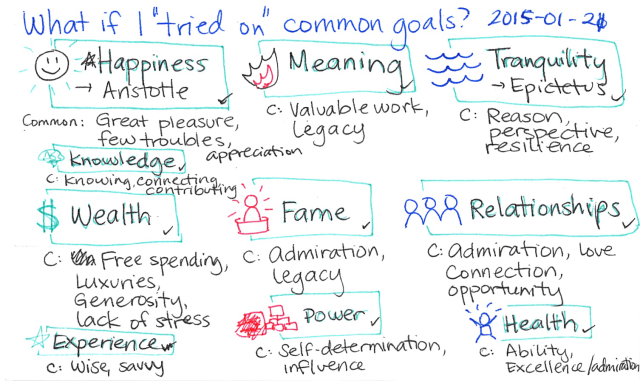 What if I "tried on" common goals? 2015-01-21
*Happiness
→ Aristotle
Common: Great pleasure,
few troubles,
appreciation
Meaning
C: Valuable work,
legacy
Tranquility
→ Epictetus
C: Reason,
perspective,
resilience
Knowledge
C: Knowing, connecting
contributing
$ Wealth
C: Free spending,
Luxuries,
Generosity,
lack of stress
Fame
C: Admiration,
legacy
Relationships
C: Admiration, love
Connection,
opportunity
Experience
C: Wise, savvy
Power
C: Self-determination,
influence
Health
C: Ability,
Excellence/admiration